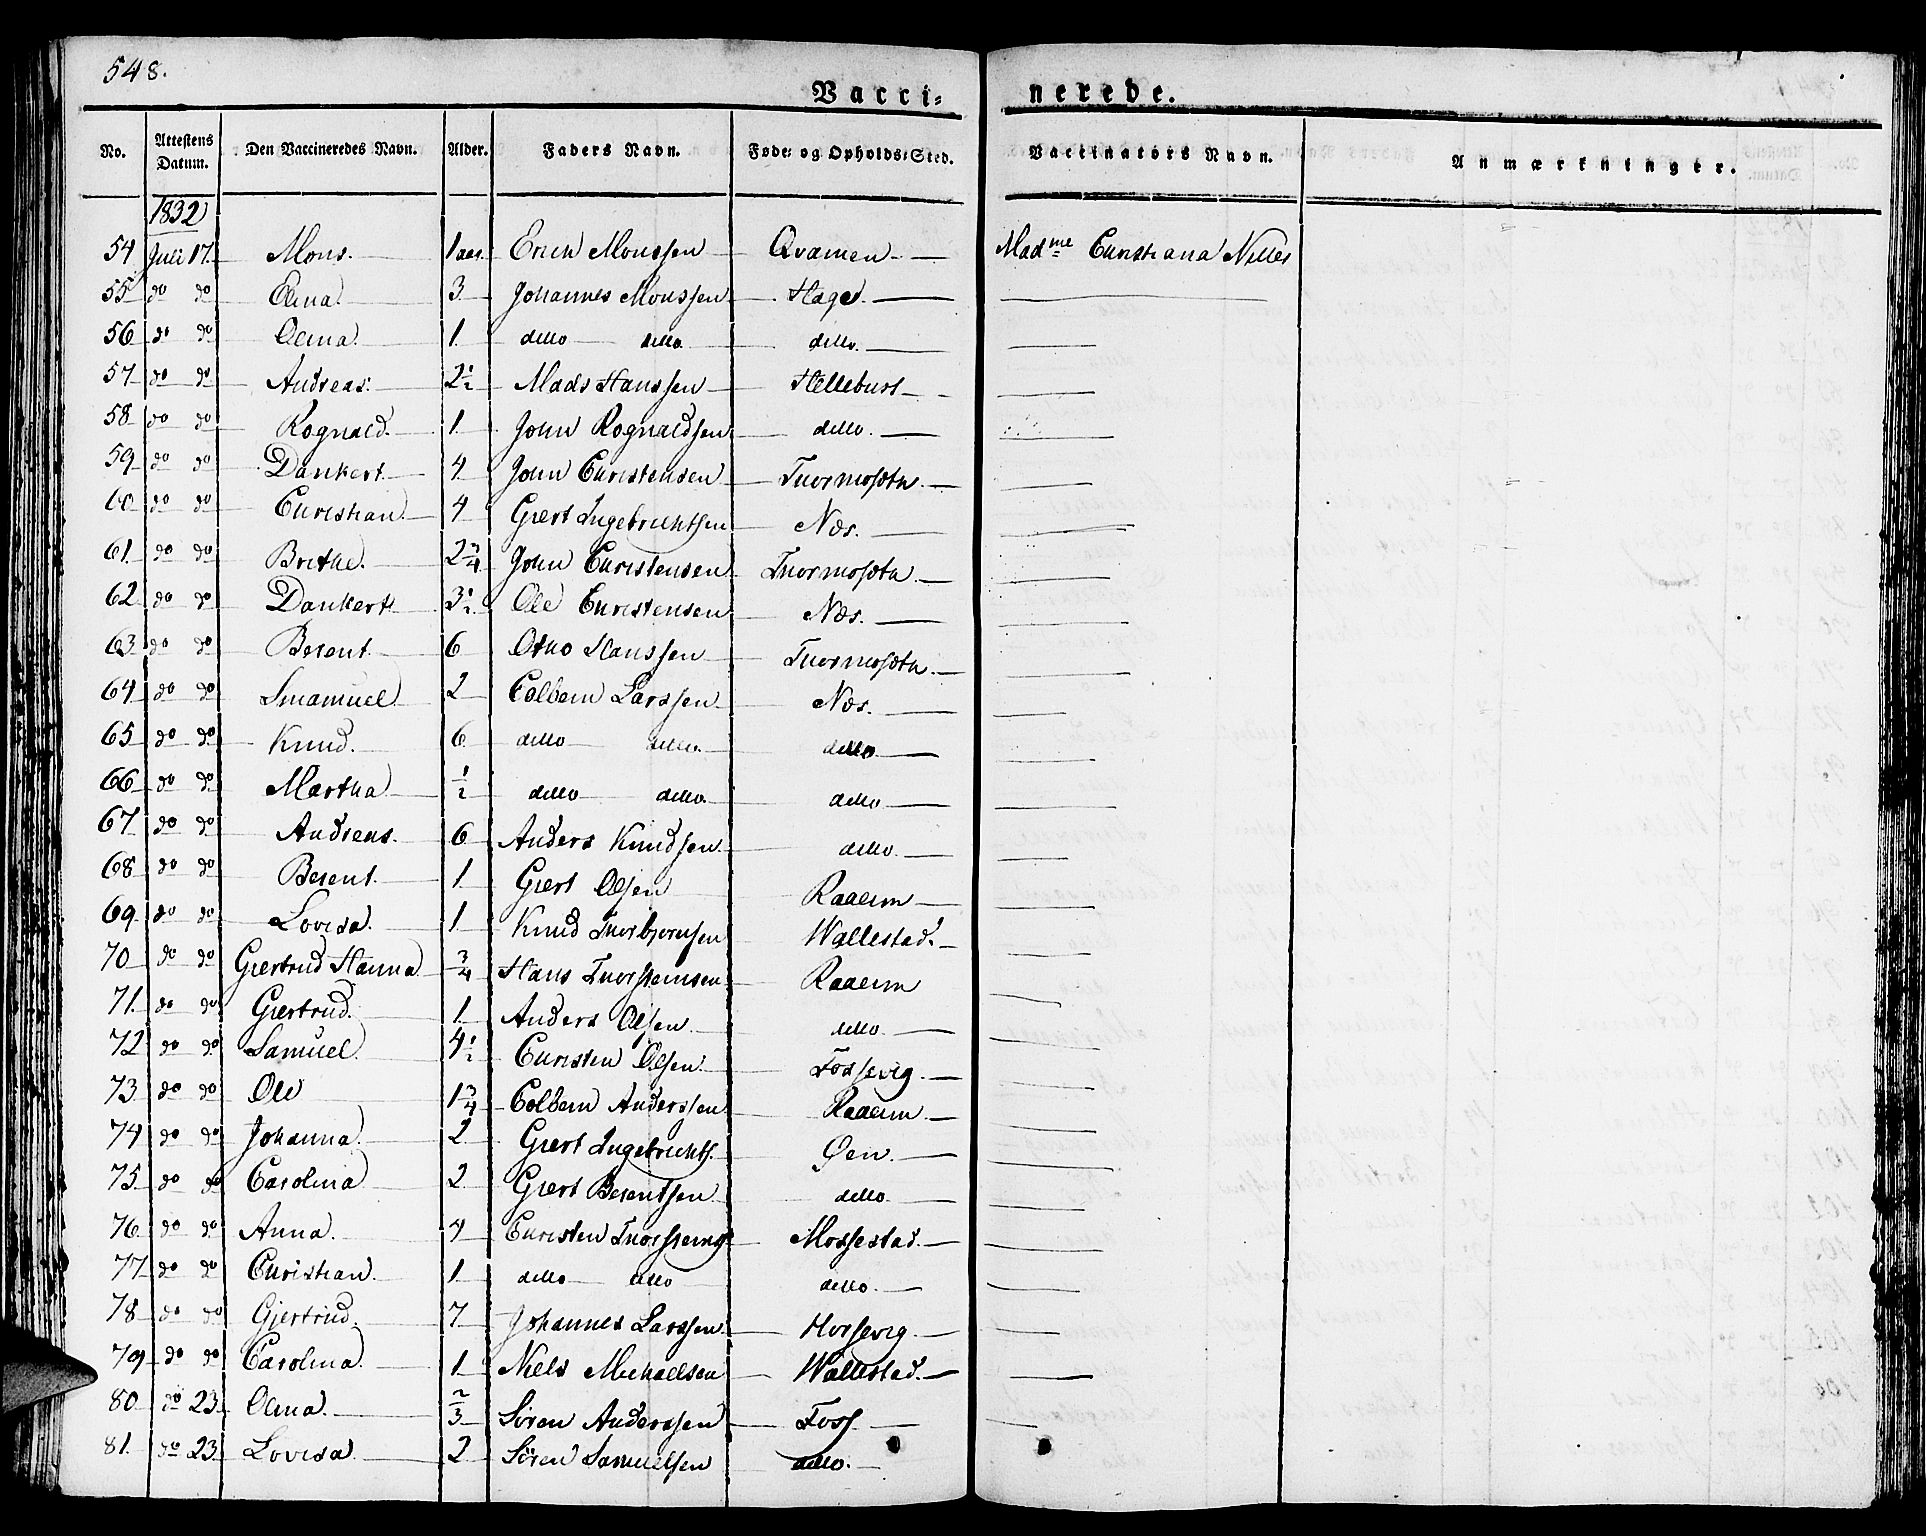 548.
Vacci= nerede.
No. Attestens Datum. Den Vaccineredes Navn. Alder. Faders Navn. Føde= og Opholds=Sted. Vaccinators Navn. Anmærkninger.
1832
54 Juli 17. Mons. 1 aar. Erich Monssen Qvamen Madme Christiana Nilles
55 do do Elina. 3 Johannes Monssen Hage.
56 do do Olina. 1 detto detto detto.
57 do do Andreas. 2 1/2 Mads Hanssen Hellebust
58 do do Rognald. 1 John Rognaldsen detto.
59 do do Dankert 4 John Christensen Thormosæth.
60 do do Christian 4 Giert Ingebrichtsen Næs.
61. do do Brithe. 2 3/4 John Christensen Thormosæth
62 do do Dankert 3 1/2 Ole Christensen Næs.
63 do do Berent 6 Otho Hanssen Thormosæth.
64 do do Imamuel 2 Colbein Larssen Næs.
65 do do Knud. 6 detto detto. detto
66 do do Martha 1/2 detto detto. detto
67 do do Andreas. 6 Anders Knudsen detto.
68 do do Berent 1 Giert Olsen Raaeim
69. do do Lovisa. 1 Knud Thorbjornsen Wallestad.
70 do do Giertrud Hanna 3/4 Hans Thorsteinsen Raaeim
71. do do Giertrud. 1. Anders Olsen detto.
72 do do Samuel 4 1/2 Christen Olsen Fossevig.
73 do do Ole 1 3/4 Colbein Anderssen Raaeim
74 do do Johanna 2 Giert Ingebrichts. Øen.
75 do do Carolina 2 Giert Berentsen detto.
76 do do Anna. 4 Christen Thorsteins Mossestad.
77 do do Christian. 1 detto detto detto.
78 do do Gjertrud. 7 Johannes Larssen Horsevig.
79 do do Carolina 1 Niels Michaelsen Wallestad.
80 do 23 Olina. 2/3 Søren Anderssen Foss.
81. do 23 Lovisa 2 Søren Samuelsen detto.